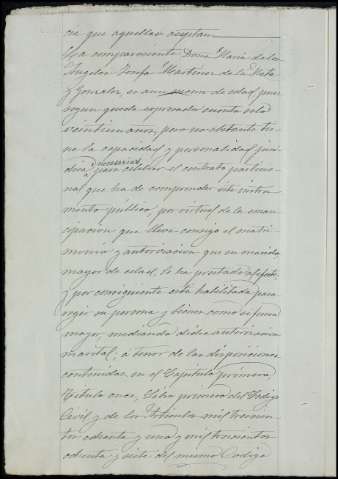 cse que aquellas aceptan.
La compareciente Doña Maria de los
Angeles Josefa Martinez de la Mata
y Gonzalez, es aun menor de edad pues
segun queda expresado cuenta solo
veintiun años, pero no obstante tie-
ne la capacidad y personalidad jurí-
dica necesarias, para celebrar el contrato particio-
nal que ha de comprender este instru-
mento público, por virtud de la eman-
cipacion que lleva consigo el matri-
monio y autorizacion que su marido
mayor de edad, le ha prestado al efecto,
y por consiguiente está habilitada para
regir su persona y bienes como si fuera
mayor, mediando dicha autorizacion
marital, a tenor de las disposiciones
contenidas en el Capítulo primero,
Título once, Libro primero del Código
Civil y de los Artículos mil trescien-
tos ochenta y uno y mil trescientos
ochenta y siete del mismo Código